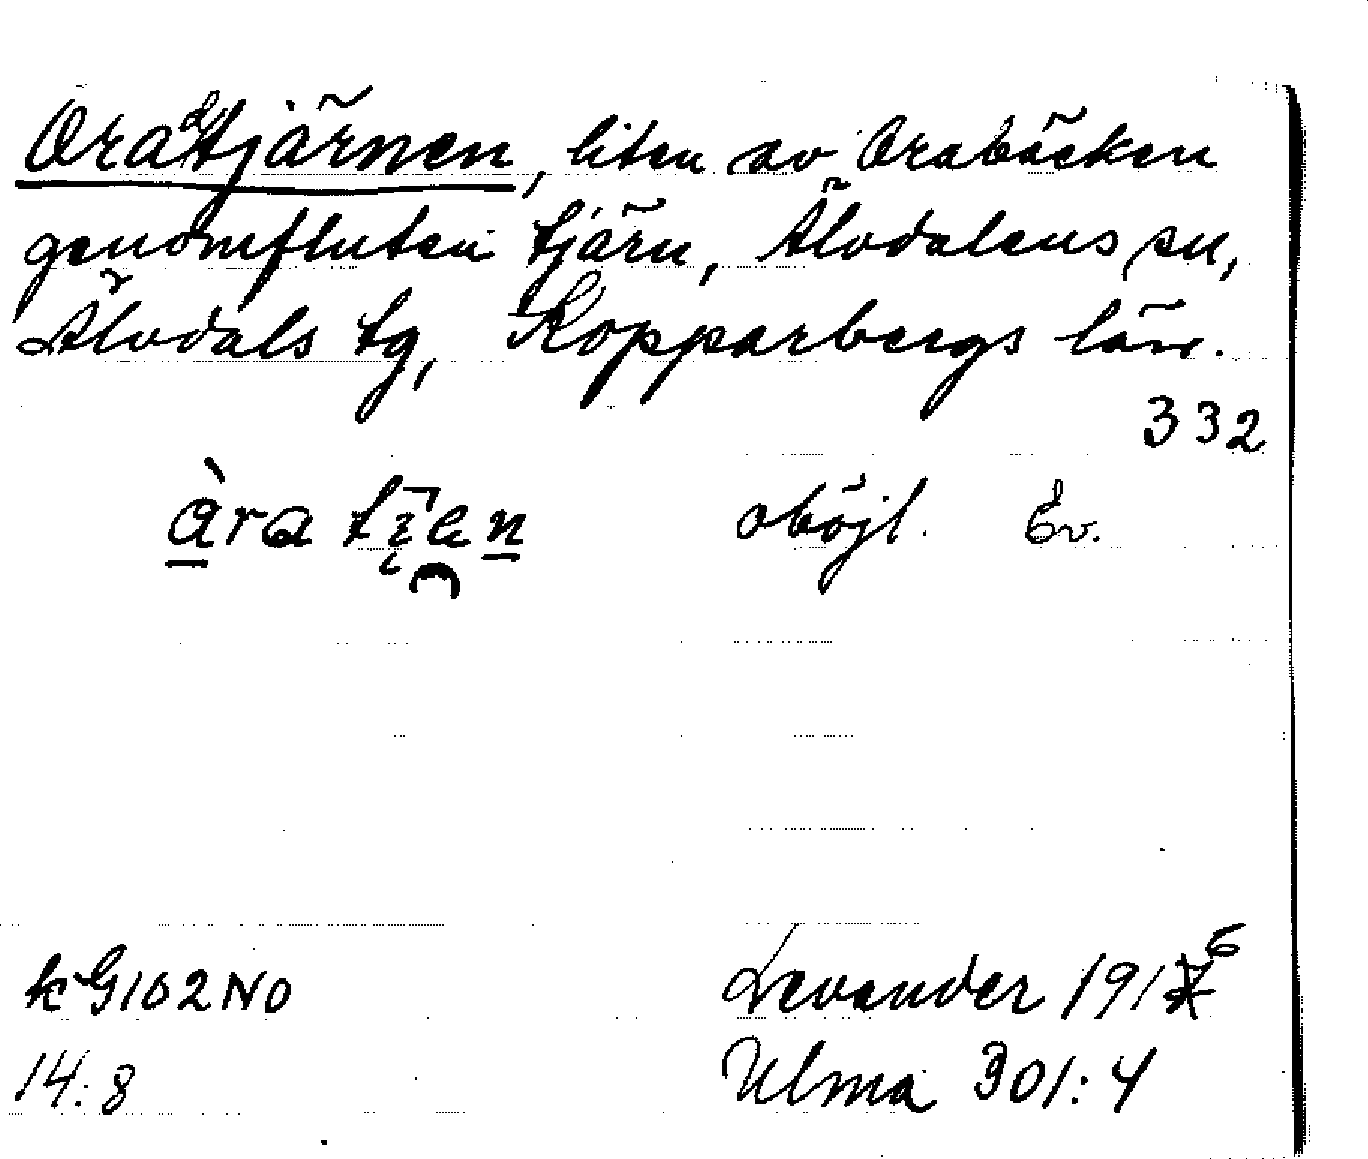 Oratjärnen, liten av Orabäcken
genomfluten tjärn, Älvdalens sn,
Älvdals tg, Kopparbergs län.
332
oböjl. Ev.
kG102NO
Levander 1916
14:8
Ulma 301:4